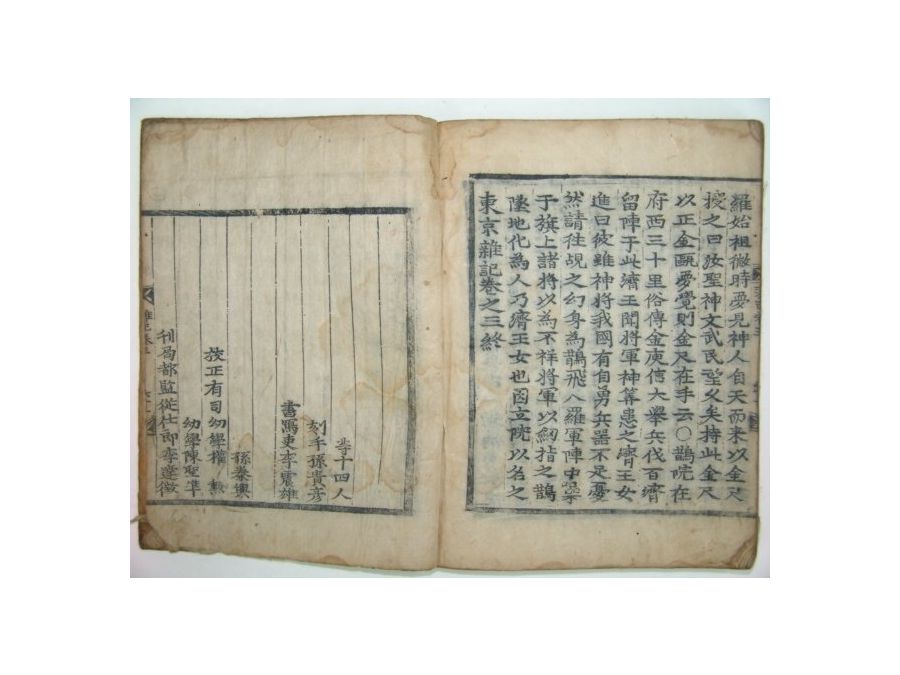 羅始祖微時夢見神人自天而來以金尺
授之曰汝聖神文武民望久矣持此金尺
以正金甌夢覺則金尺在手云〇鵲院在
府西三十里俗傳金庾信大擧兵伐百濟
留陣于此濟王聞將軍神筭患之濟王女
進曰彼雖神將我國有自勇兵器不足憂
然請往覘之幻身為鵲飛入羅軍陣中噪
于旗上諸將以為不祥將軍以劒指之鵲
墜地化為人乃濟王女也因立院以名之
東京雜記卷之三終
等十四人
刻手孫貴彦
書寫吏李震雄
孫泰興
校正有司幼學權 勲
幼學陳聖準
刊局都監從仕郎李
雜記卷三